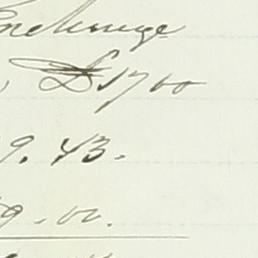 Exchange
, £1700
9. 43.
9. 00.